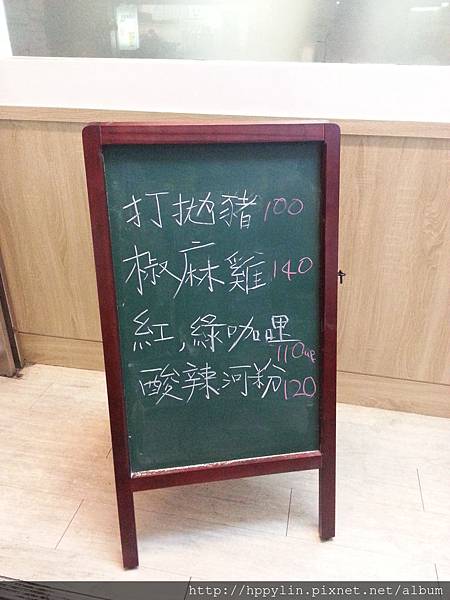 打拋豬100
椒麻雞140
紅,綠咖哩
110up
酸辣河粉120
http://hppylin.pixnet.net/album